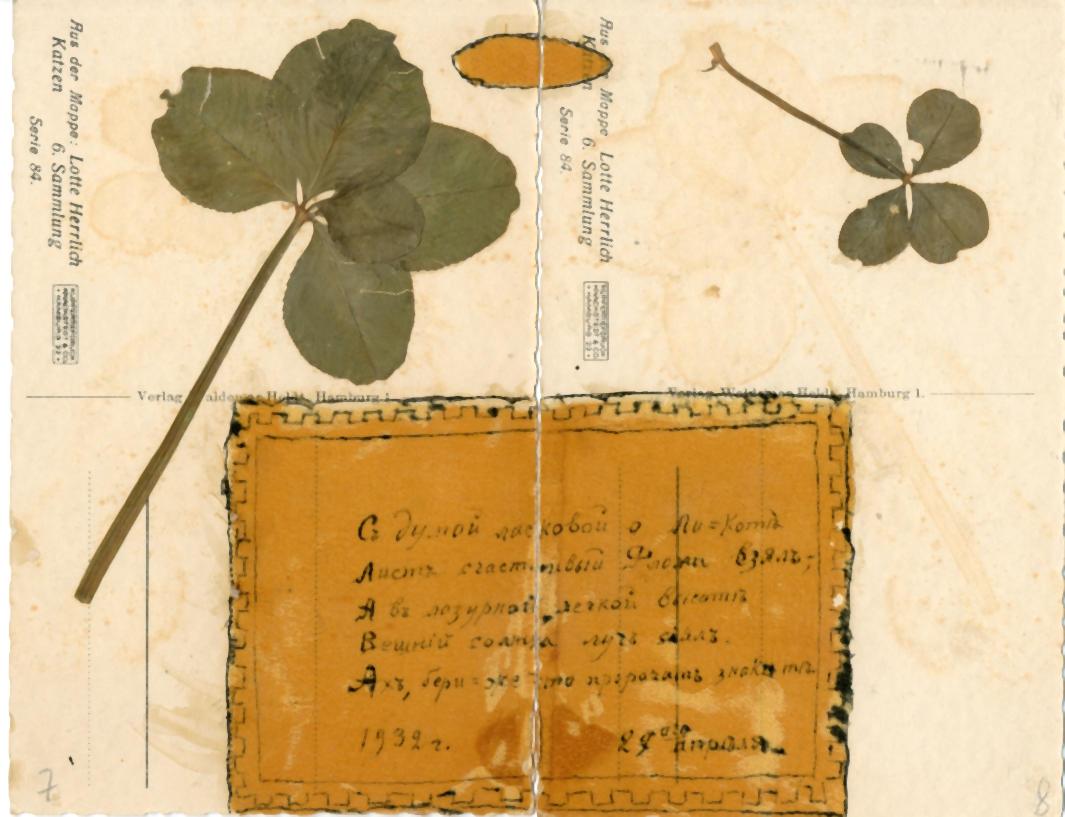 Aus der Mappe: Lotte Herrlich
Katzen 6. Sammlung
Serie 84.
Aus Mappe Lotte Herrlich
Katzen 6. Sammlung
Serie 84.
Verlag Waldemar Heldt, Hamburg 1.
Verlag Waldemar Heldt, Hamburg 1.
Съ думой ласковой о Ли=Котѣ
Листъ счастливый Фломи взялъ;
А въ лазурной легкой высотѣ
Вешній солнца лучъ сіялъ.
Ахъ, бери=же что пророчатъ знаки тѣ
1932 г. 29ого апрѣля.
7
8